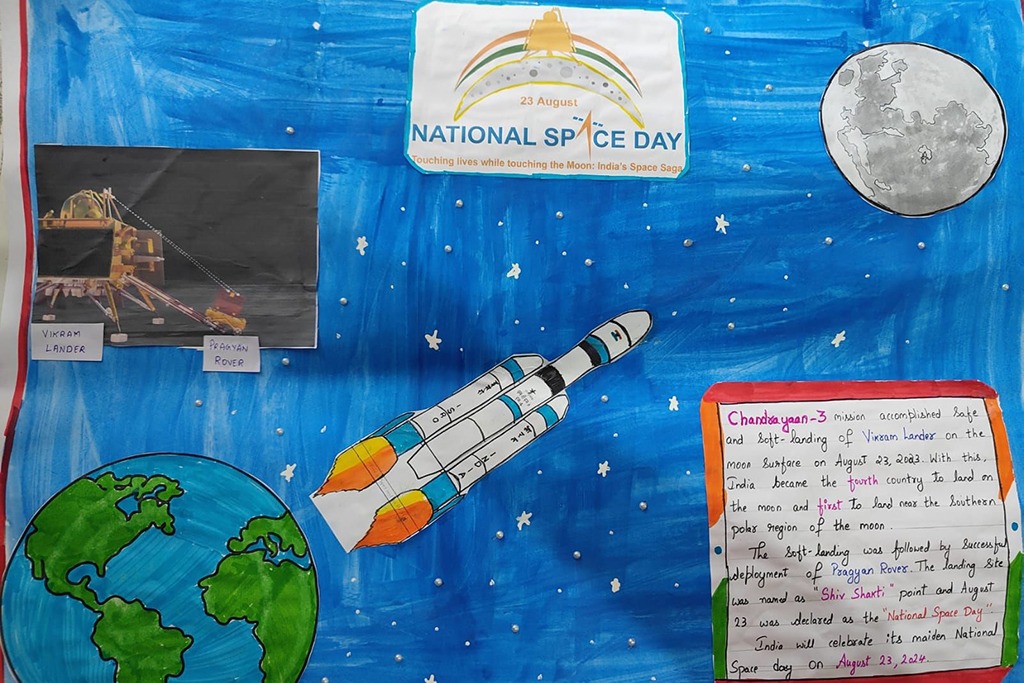 23 August
NATIONAL SPACE DAY
Touching lives while touching the Moon: India's Space Saga
VIKRAM
LANDER
PRAGYAN
ROVER
ISRO
INDIA
Chandrayaan-3 mission accomplished safe
and soft-landing of Vikram Lander on the
moon surface on August 23, 2023. With this,
India became the fourth country to land on
the moon and first to land near the Southern
polar region of the moon.
The soft-landing was followed by successful
deployment of Pragyan Rover. The landing site
was named as "Shiv Shakti" point and August
23 was declared as the "National Space Day".
India will celebrate its maiden National
Space day on August 23, 2024.